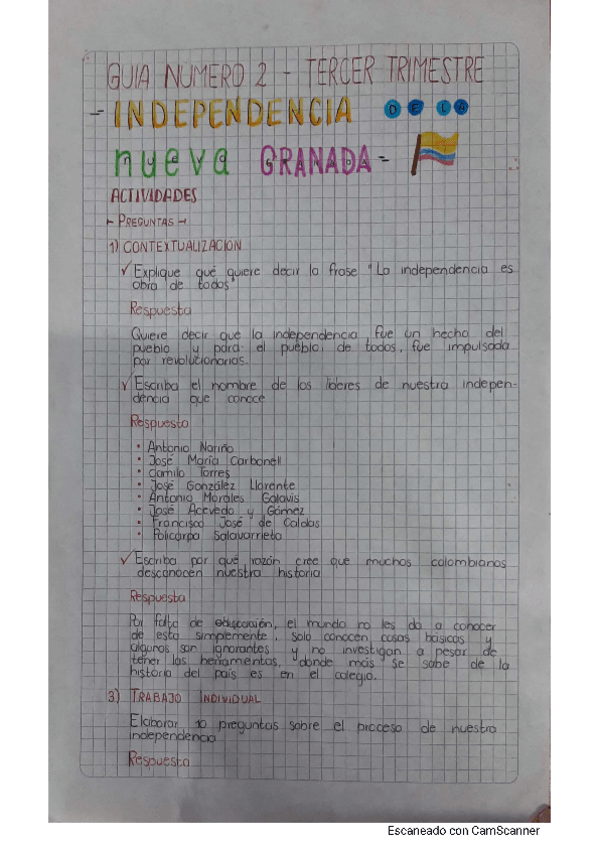 GUIA NUMERO 2 - TERCER TRIMESTRE
- INDEPENDENCIA DE LA
nueva GRANADA -
ACTIVIDADES
- PREGUNTAS -
1) CONTEXTUALIZACION
✓ Explique qué quiere decir la frase "La independencia es
obra de todos"
Respuesta
Quiere decir que la independencia fue un hecho del
pueblo y para el pueblo, de todos, fue impulsada
por revolucionarios.
✓ Escriba el nombre de los líderes de nuestra indepen-
dencia que conoce
Respuesta
• Antonio Nariño
• José María Carbonell
• Camilo Torres
• José González Llorente
• Antonio Morales Galavis
• José Acevedo y Gómez
• Francisco José de Caldas
• Policarpa Salavarrieta
✓ Escriba por qué razón cree que muchos colombianos
desconocen nuestra historia
Respuesta
Por falta de educación, el mundo no les da a conocer
de esto simplemente, solo conocen cosas básicas y
algunos son ignorantes y no investigan a pesar de
tener las herramientas, donde más se sabe de la
historia del país es en el colegio.
3) TRABAJO INDIVIDUAL
Elaborar 10 preguntas sobre el proceso de nuestra
independencia
Respuesta
Escaneado con CamScanner